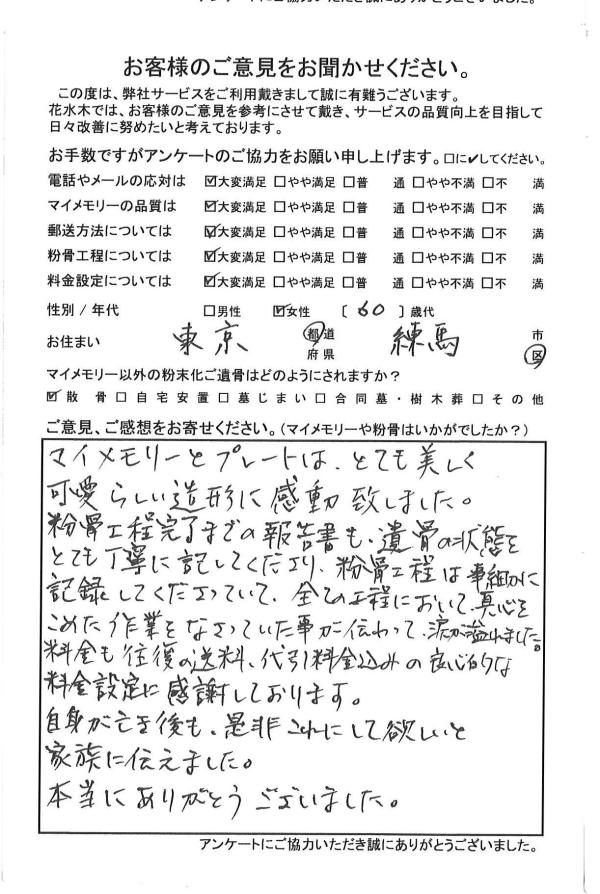 アンケートにご協力いただき誠にありがとうございました。
お客様のご意見をお聞かせください。
この度は、弊社サービスをご利用戴きまして誠に有難うございます。
花水木では、お客様のご意見を参考にさせて戴き、サービスの品質向上を目指して
日々改善に努めたいと考えております。
お手数ですがアンケートのご協力をお願い申し上げます。□に✔してください。
電話やメールの応対は ☑大変満足 □やや満足 □普 通 □やや不満 □不 満
マイメモリーの品質は ☑大変満足 □やや満足 □普 通 □やや不満 □不 満
郵送方法については ☑大変満足 □やや満足 □普 通 □やや不満 □不 満
粉骨工程については ☑大変満足 □やや満足 □普 通 □やや不満 □不 満
料金設定については ☑大変満足 □やや満足 □普 通 □やや不満 □不 満
性別 / 年代 □男性 ☑女性 〔 60 〕歳代
お住まい 東京 都道府県 練馬 市区
マイメモリー以外の粉末化ご遺骨はどのようにされますか？
☑散 骨□自宅安置□墓じまい□合同墓・樹木葬□その他
ご意見、ご感想をお寄せください。(マイメモリーや粉骨はいかがでしたか？)
マイメモリーとプレートは、とても美しく
可愛らしい造形に感動致しました。
粉骨工程完了までの報告書も、遺骨の状態を
とても丁寧に記してくださり、粉骨工程は事細かに
記録してくださっていて、全ての工程において、真心を
こめた作業をなさっていた事が伝わって、涙が溢れました。
料金も往復の送料、代引料金込みの良心的な
料金設定に感謝しております。
自身が亡き後も、是非これにして欲しいと
家族に伝えました。
本当にありがとうございました。
アンケートにご協力いただき誠にありがとうございました。